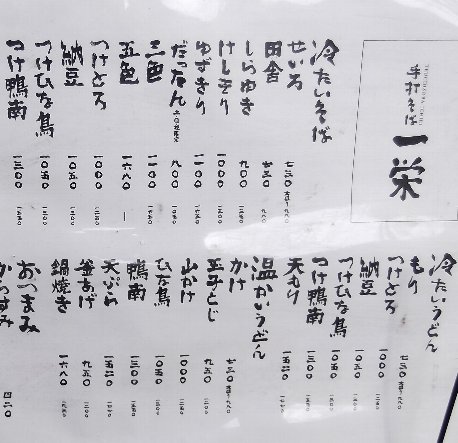 手打そば
一栄
冷たいそば
せいろ 七三〇
田舎 七三〇
しらゆき 九〇〇
けしきり 一〇〇〇
ゆずきり 一一〇〇
だったん 九〇〇
三色 一三〇〇
五色 一六八〇
つけとろ 一〇〇〇
納豆 一〇五〇
つけひな鳥 一〇五〇
つけ鴨南 一三〇〇
冷たいうどん
もり 七三〇
つけとろ 一〇〇〇
納豆 一〇五〇
つけひな鳥 一〇五〇
つけ鴨南 一三〇〇
天もり 一五二〇
温かいうどん
かけ 七三〇
玉子とじ 九五〇
山かけ 一〇〇〇
ひな鳥 一〇五〇
鴨南 一三〇〇
天ぷら 一五二〇
釜あげ 九五〇
鍋焼き 一六八〇
おつまみ
からすみ